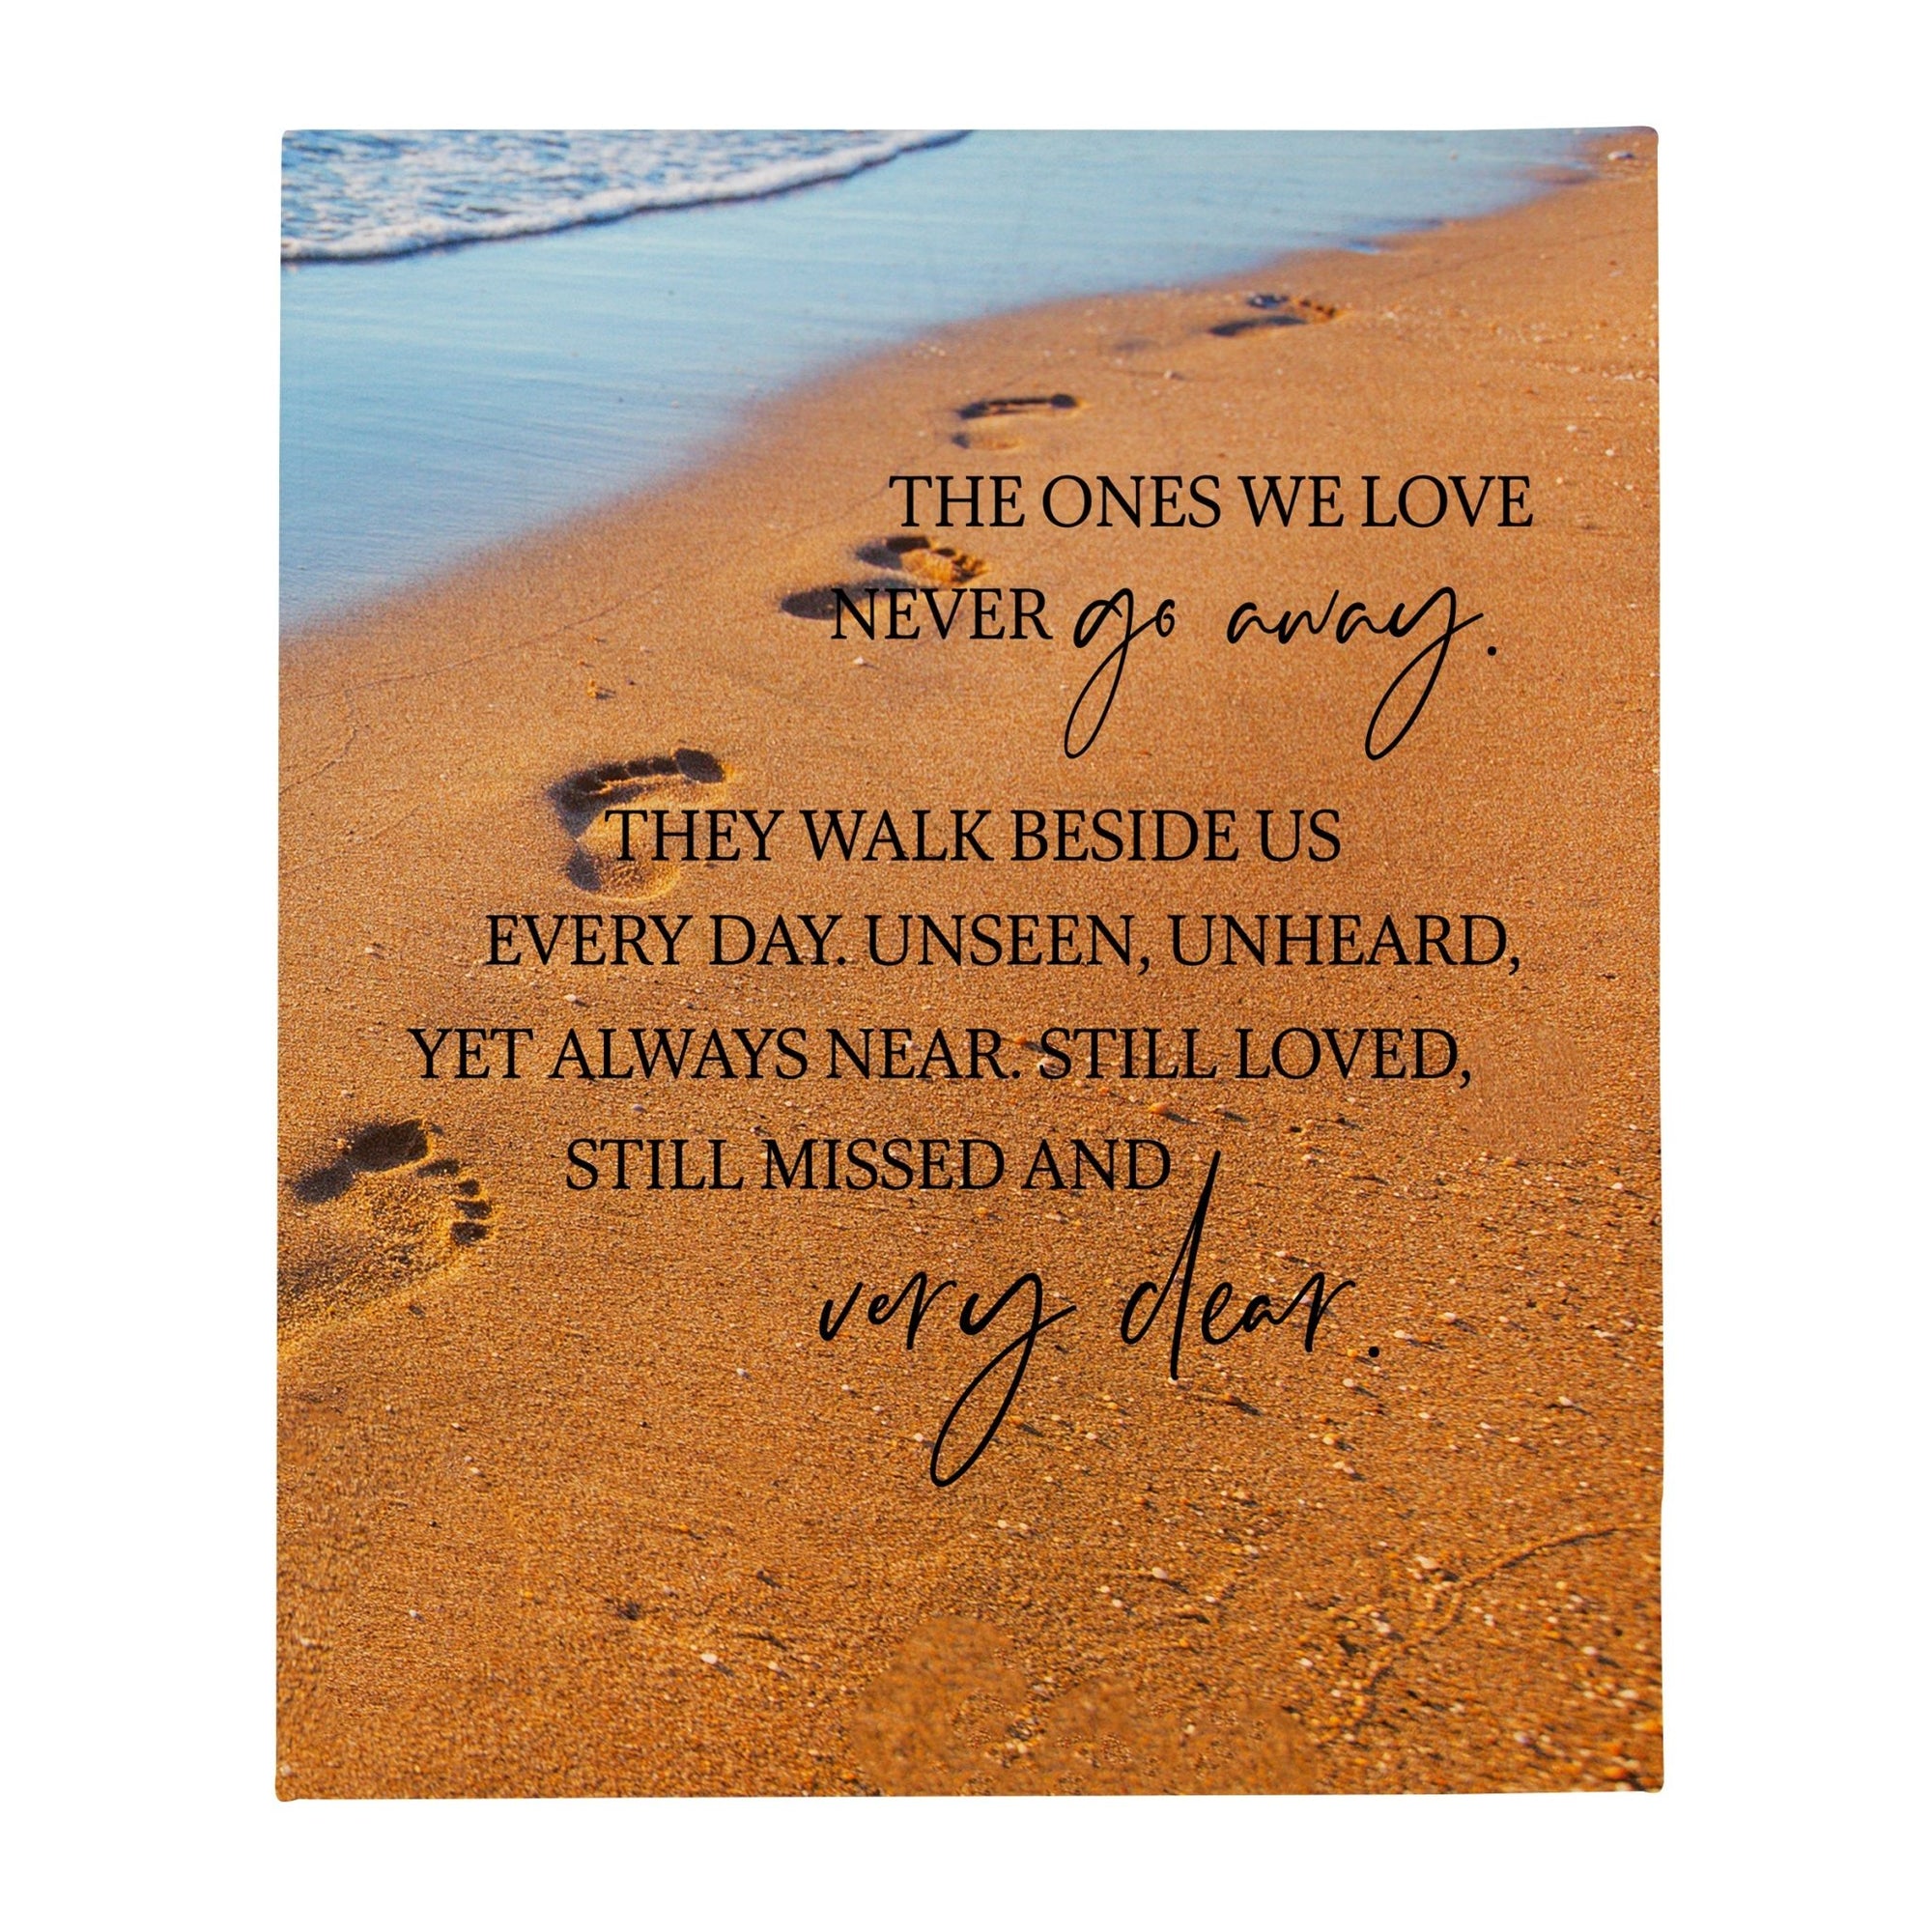 THE ONES WE LOVE
NEVER go away.
THEY WALK BESIDE US
EVERY DAY. UNSEEN, UNHEARD,
YET ALWAYS NEAR. STILL LOVED,
STILL MISSED AND
very dear.